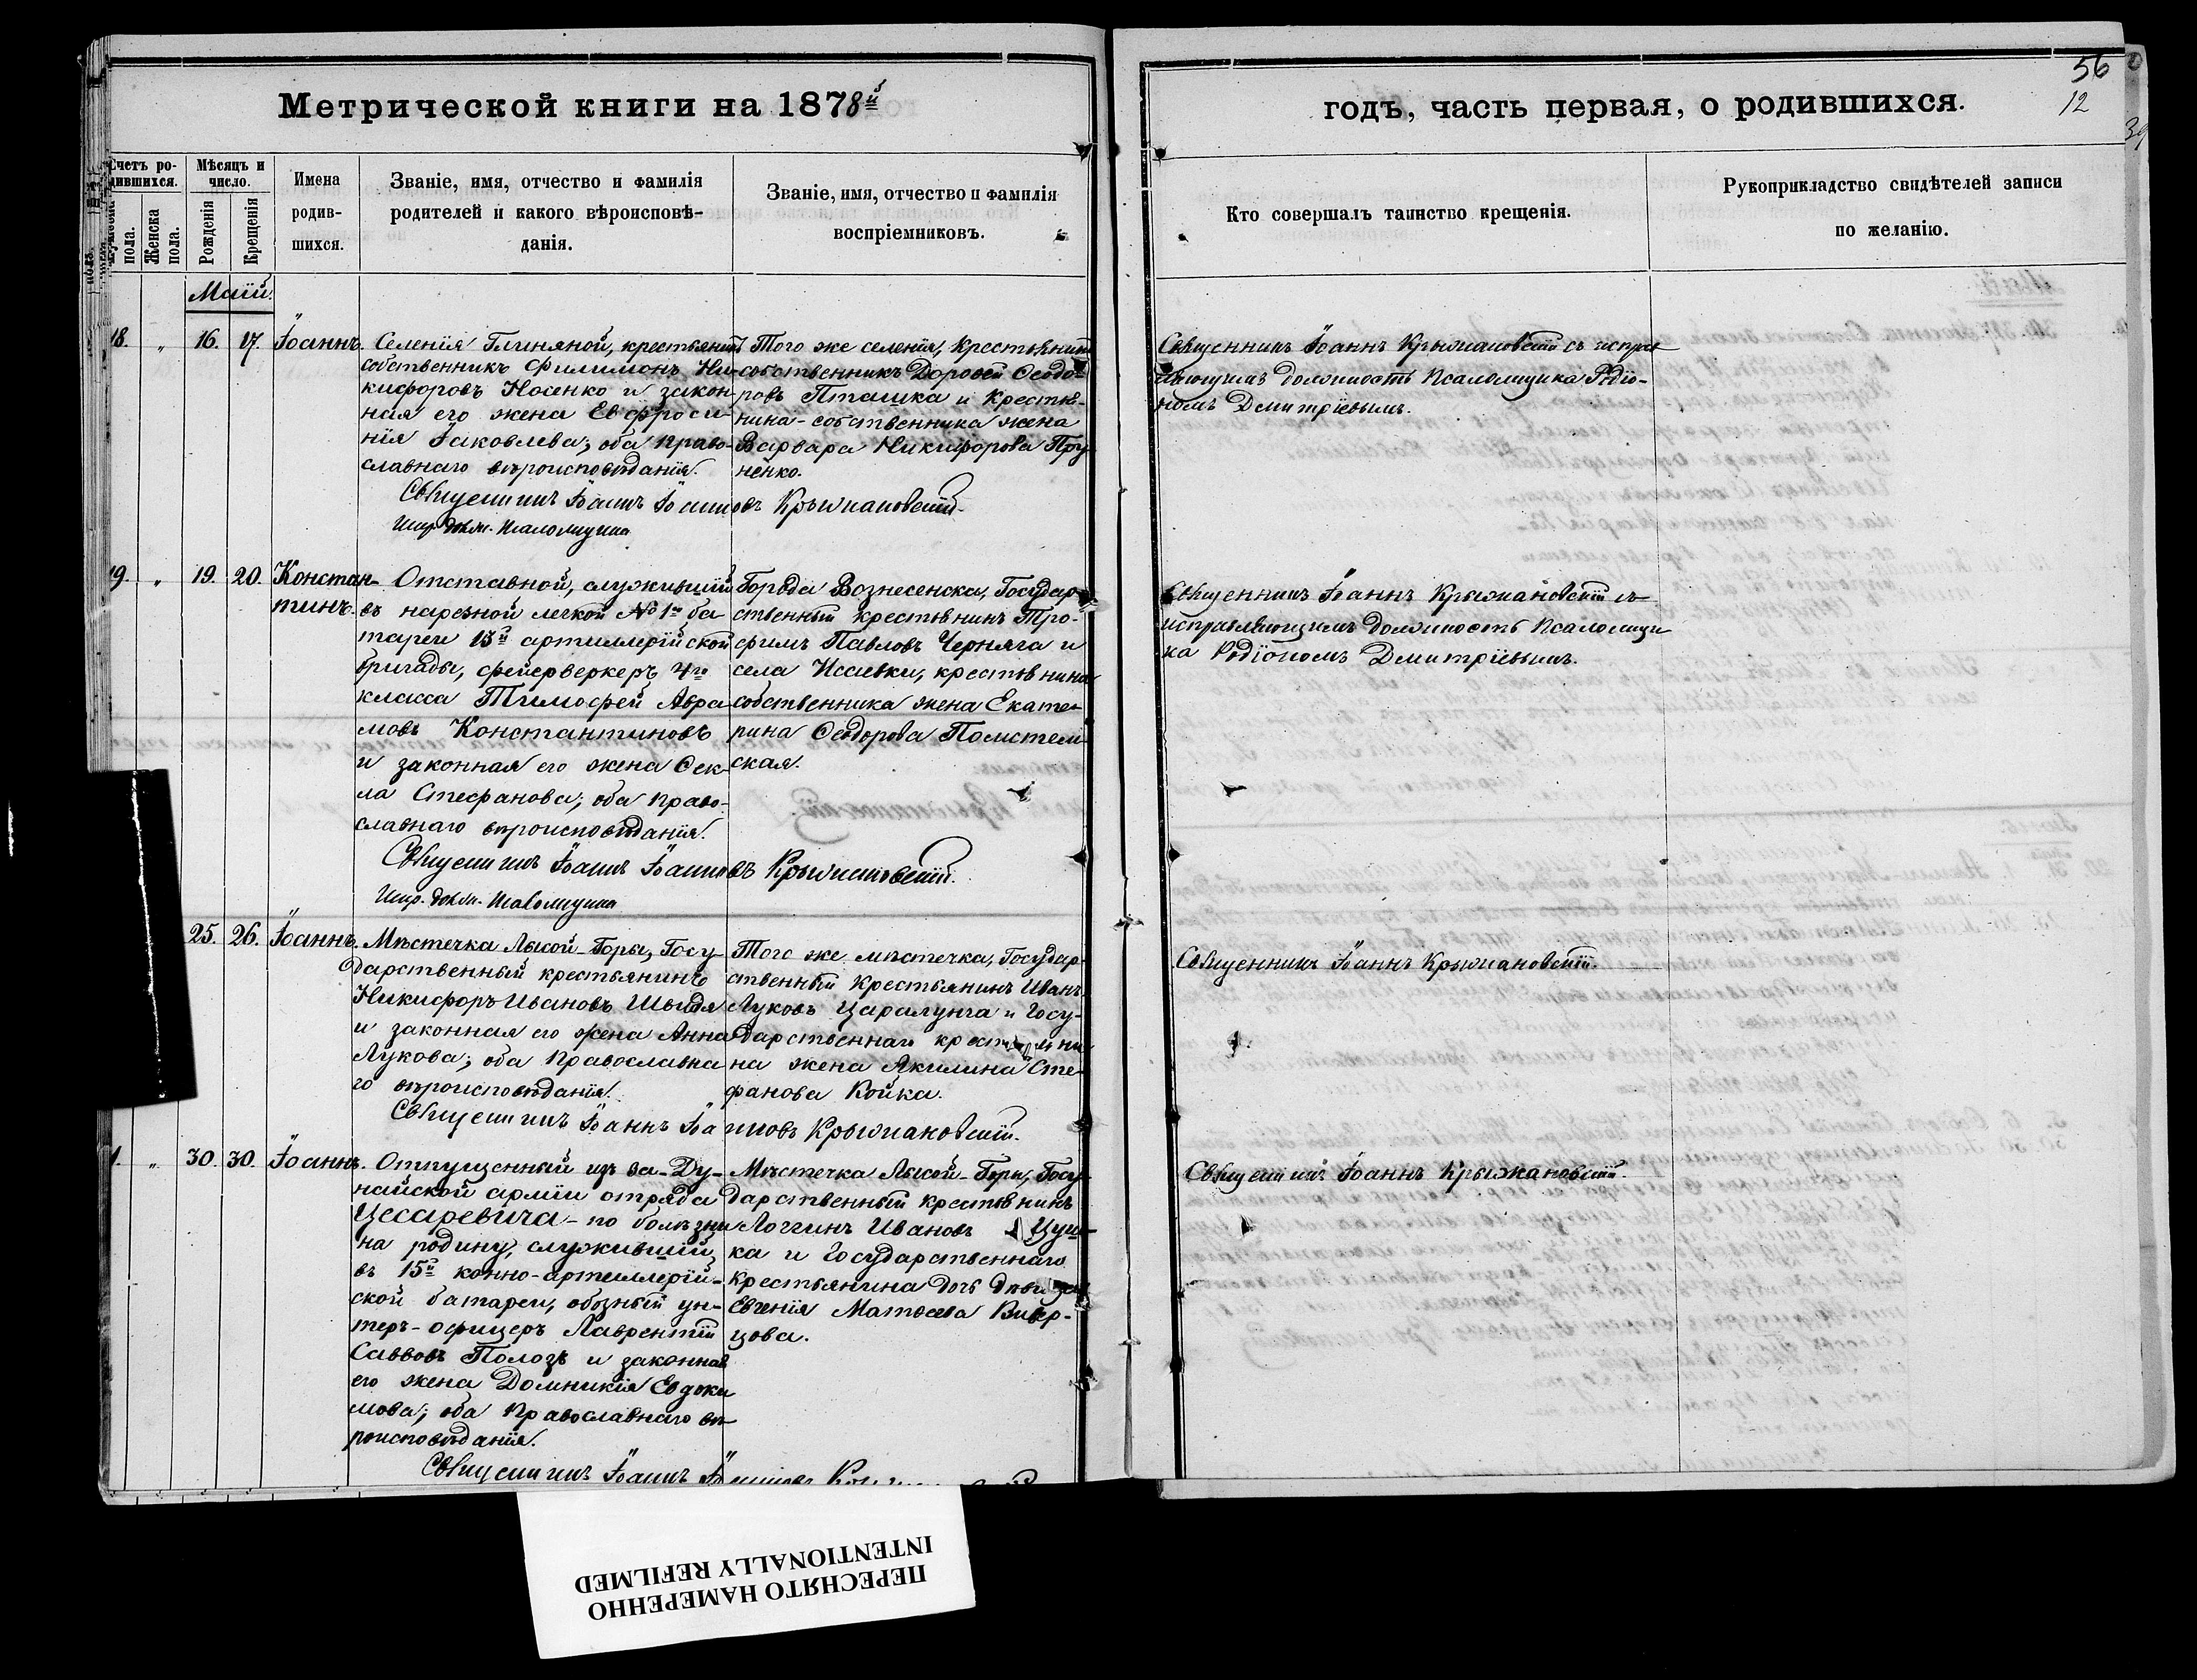 Метрической книги на 1878й
годъ, часть первая, о родившихся.
56
12
39
Счетъ ро-
дившихся.
пола.
Женска
пола.
Мѣсяцъ и
число.
Рожденія
Крещенія
Имена
родив-
шихся.
Званіе, имя, отчество и фамилія
родителей и какого вѣроисповѣ-
данія.
Званіе, имя, отчество и фамилія
воспріемниковъ.
Кто совершалъ таинство крещенія.
Рукоприкладство свидѣтелей записи
по желанію.
Маій.
18. „ 16. 17. Іоаннъ.
Селенія Глиняной, крестьянинъ
собственникъ Филимонъ Ни-
кифоровъ Носенко и закон-
ная его жена Евфроси-
нія Іаковлева; оба право-
славнаго вѣроисповѣданія.
Того же селенія, крестьянинъ
собственникъ Дороѳей Ѳеодо-
ровъ Пташка и крестья-
нина-собственника жена
Варвара Никифорова
ненко.
Священникъ Іоаннъ Іоанновъ Крыжановскій.
Испр. должн. Псаломщика
Священникъ Іоаннъ Крыжановскій съ исправ
ляющимъ должность псаломщика Родіо-
номъ Димитріевымъ.
19. „ 19. 20. Констан-
тинъ.
Отставной, служившій
въ нарезной легкой № 1й ба
тареи 15й артиллерійской
бригады, фейерверкеръ 4го
класса Тимофей Авра-
мовъ Константиновъ
и законная его жена Ѳек-
ла Стефанова; оба право-
славнаго вѣроисповѣданія.
Города Вознесенска, Государ-
ственный крестьянинъ Тро-
фимъ Павловъ Черняга и
села Исаевки, крестьянина
собственника жена Екате-
рина Ѳеодорова
ская.
Священникъ Іоаннъ Іоанновъ Крыжановскій.
Испр. должн. Псаломщика
Священникъ Іоаннъ Крыжановскій съ
исправляющимъ должность псаломщи
ка Родіономъ Димитріевымъ.
25. 26. Іоаннъ.
Мѣстечка Лысой-Горы, Госу
дарственный крестьянинъ
Никифоръ Ивановъ Швыдя
и законная его жена Анна
Лукова; оба православна
го вѣроисповѣданія.
Того же мѣстечка, Государ-
ственный крестьянинъ Иванъ
Луковъ Царалунга и Госу-
дарственнаго крестьяни
на жена Акилина Сте-
фанова Койка.
Священникъ Іоаннъ Іоанновъ Крыжановскій.
Священникъ Іоаннъ Крыжановскій.
„ 30. 30. Іоаннъ.
Отпущенный изъ за-Ду-
найской арміи отряда
Цесаревича-по болѣзни
на родину, служившій
въ 15й конно-артиллерій-
ской батареи, обозный ун-
теръ-офицеръ Лаврентій
Саввовъ Полозъ и законная
его жена Домникія Евдоки
мова; оба православнаго вѣ-
роисповѣданія.
Мѣстечка Лысой-Горы, Госу-
дарственный крестьянинъ
Логгинъ Ивановъ Цуш-
ка и Государственнаго
крестьянина дочь дѣвица
Евгенія Матѳеева Вивер-
цова.
Священникъ Іоаннъ
Священникъ Іоаннъ Крыжановскій.
ПЕРЕСНЯТО НАМЕРЕННО
INTENTIONALLY REFILMED